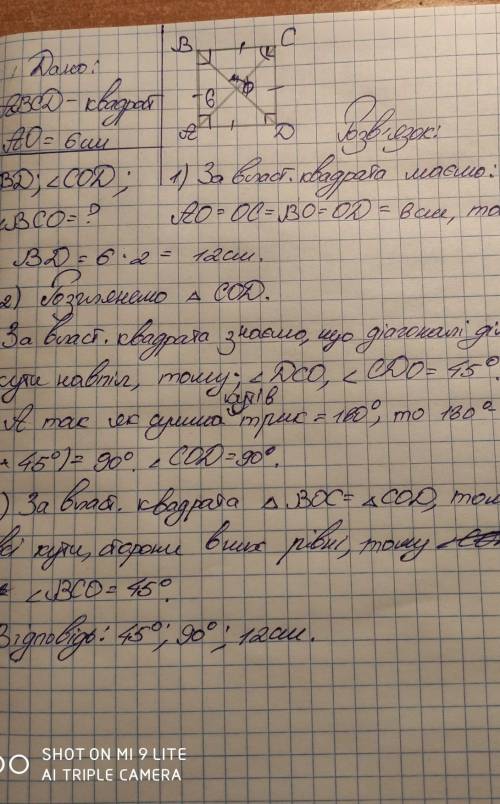 B C
Дано:
ABCD - квадрат
6
A D
AO = 6см
Розв'язок:
BD; ∠COD;
1) За власт. квадрата маємо:
∠BCO = ?
AO = OC = BO = OD = 6см, то
BD = 6 · 2 = 12см.
2) Розглянемо △ COD.
За власт. квадрата знаємо, що діагоналі діл
кути навпіл, тому; ∠DCO, ∠CDO = 45°
кутів
А так як сумма трик = 180°, то 180°
+ 45°) = 90°. ∠COD = 90°.
) За власт. квадрата △ BOC = △COD, том
всі кути, сторони в них рівні, тому
∠BCO = 45°.
Відповідь: 45°; 90°; 12см.
SHOT ON MI 9 LITE
AI TRIPLE CAMERA